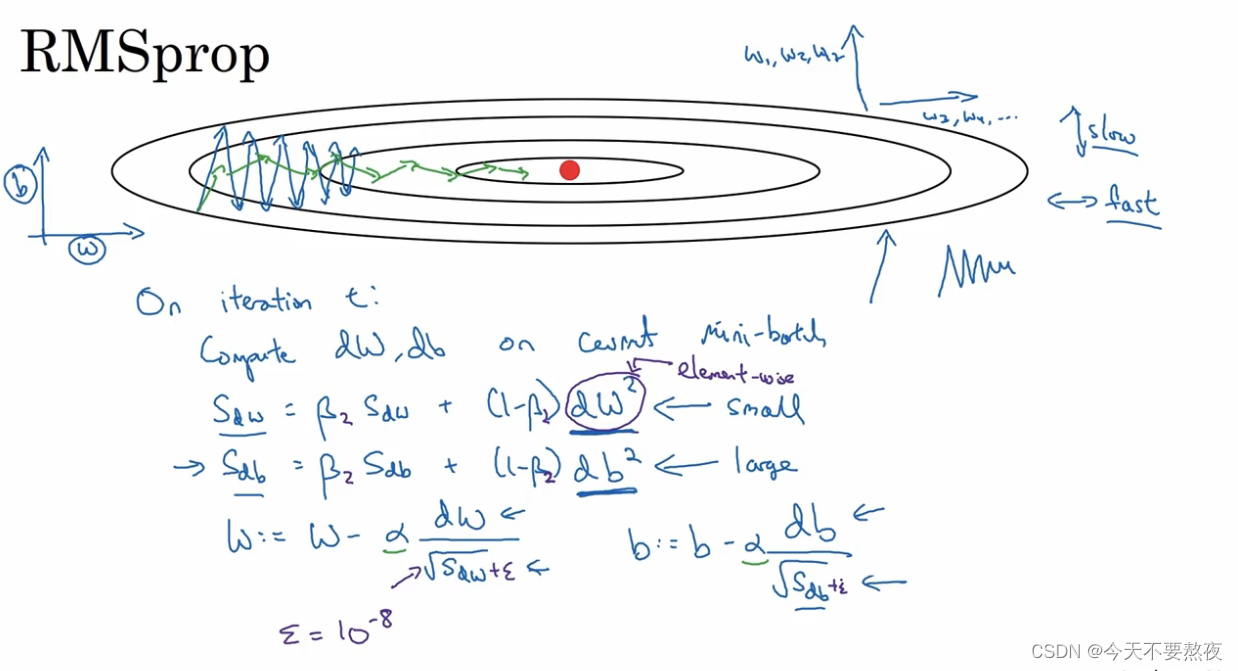 RMSprop
w₁, w₂, w₂
w₃, w₄, ...
slow
fast
b
w
On iteration t:
Compute dW, db on current mini-batch
element-wise
S_dw = β₂ S_dw + (1-β₂) dW² ← small
→ S_db = β₂ S_db + (1-β₂) db² ← large
W := W - α dW / √S_dW + ε ←
b := b - α db / √S_db + ε ←
ε = 10⁻⁸
CSDN @今天不要熬夜